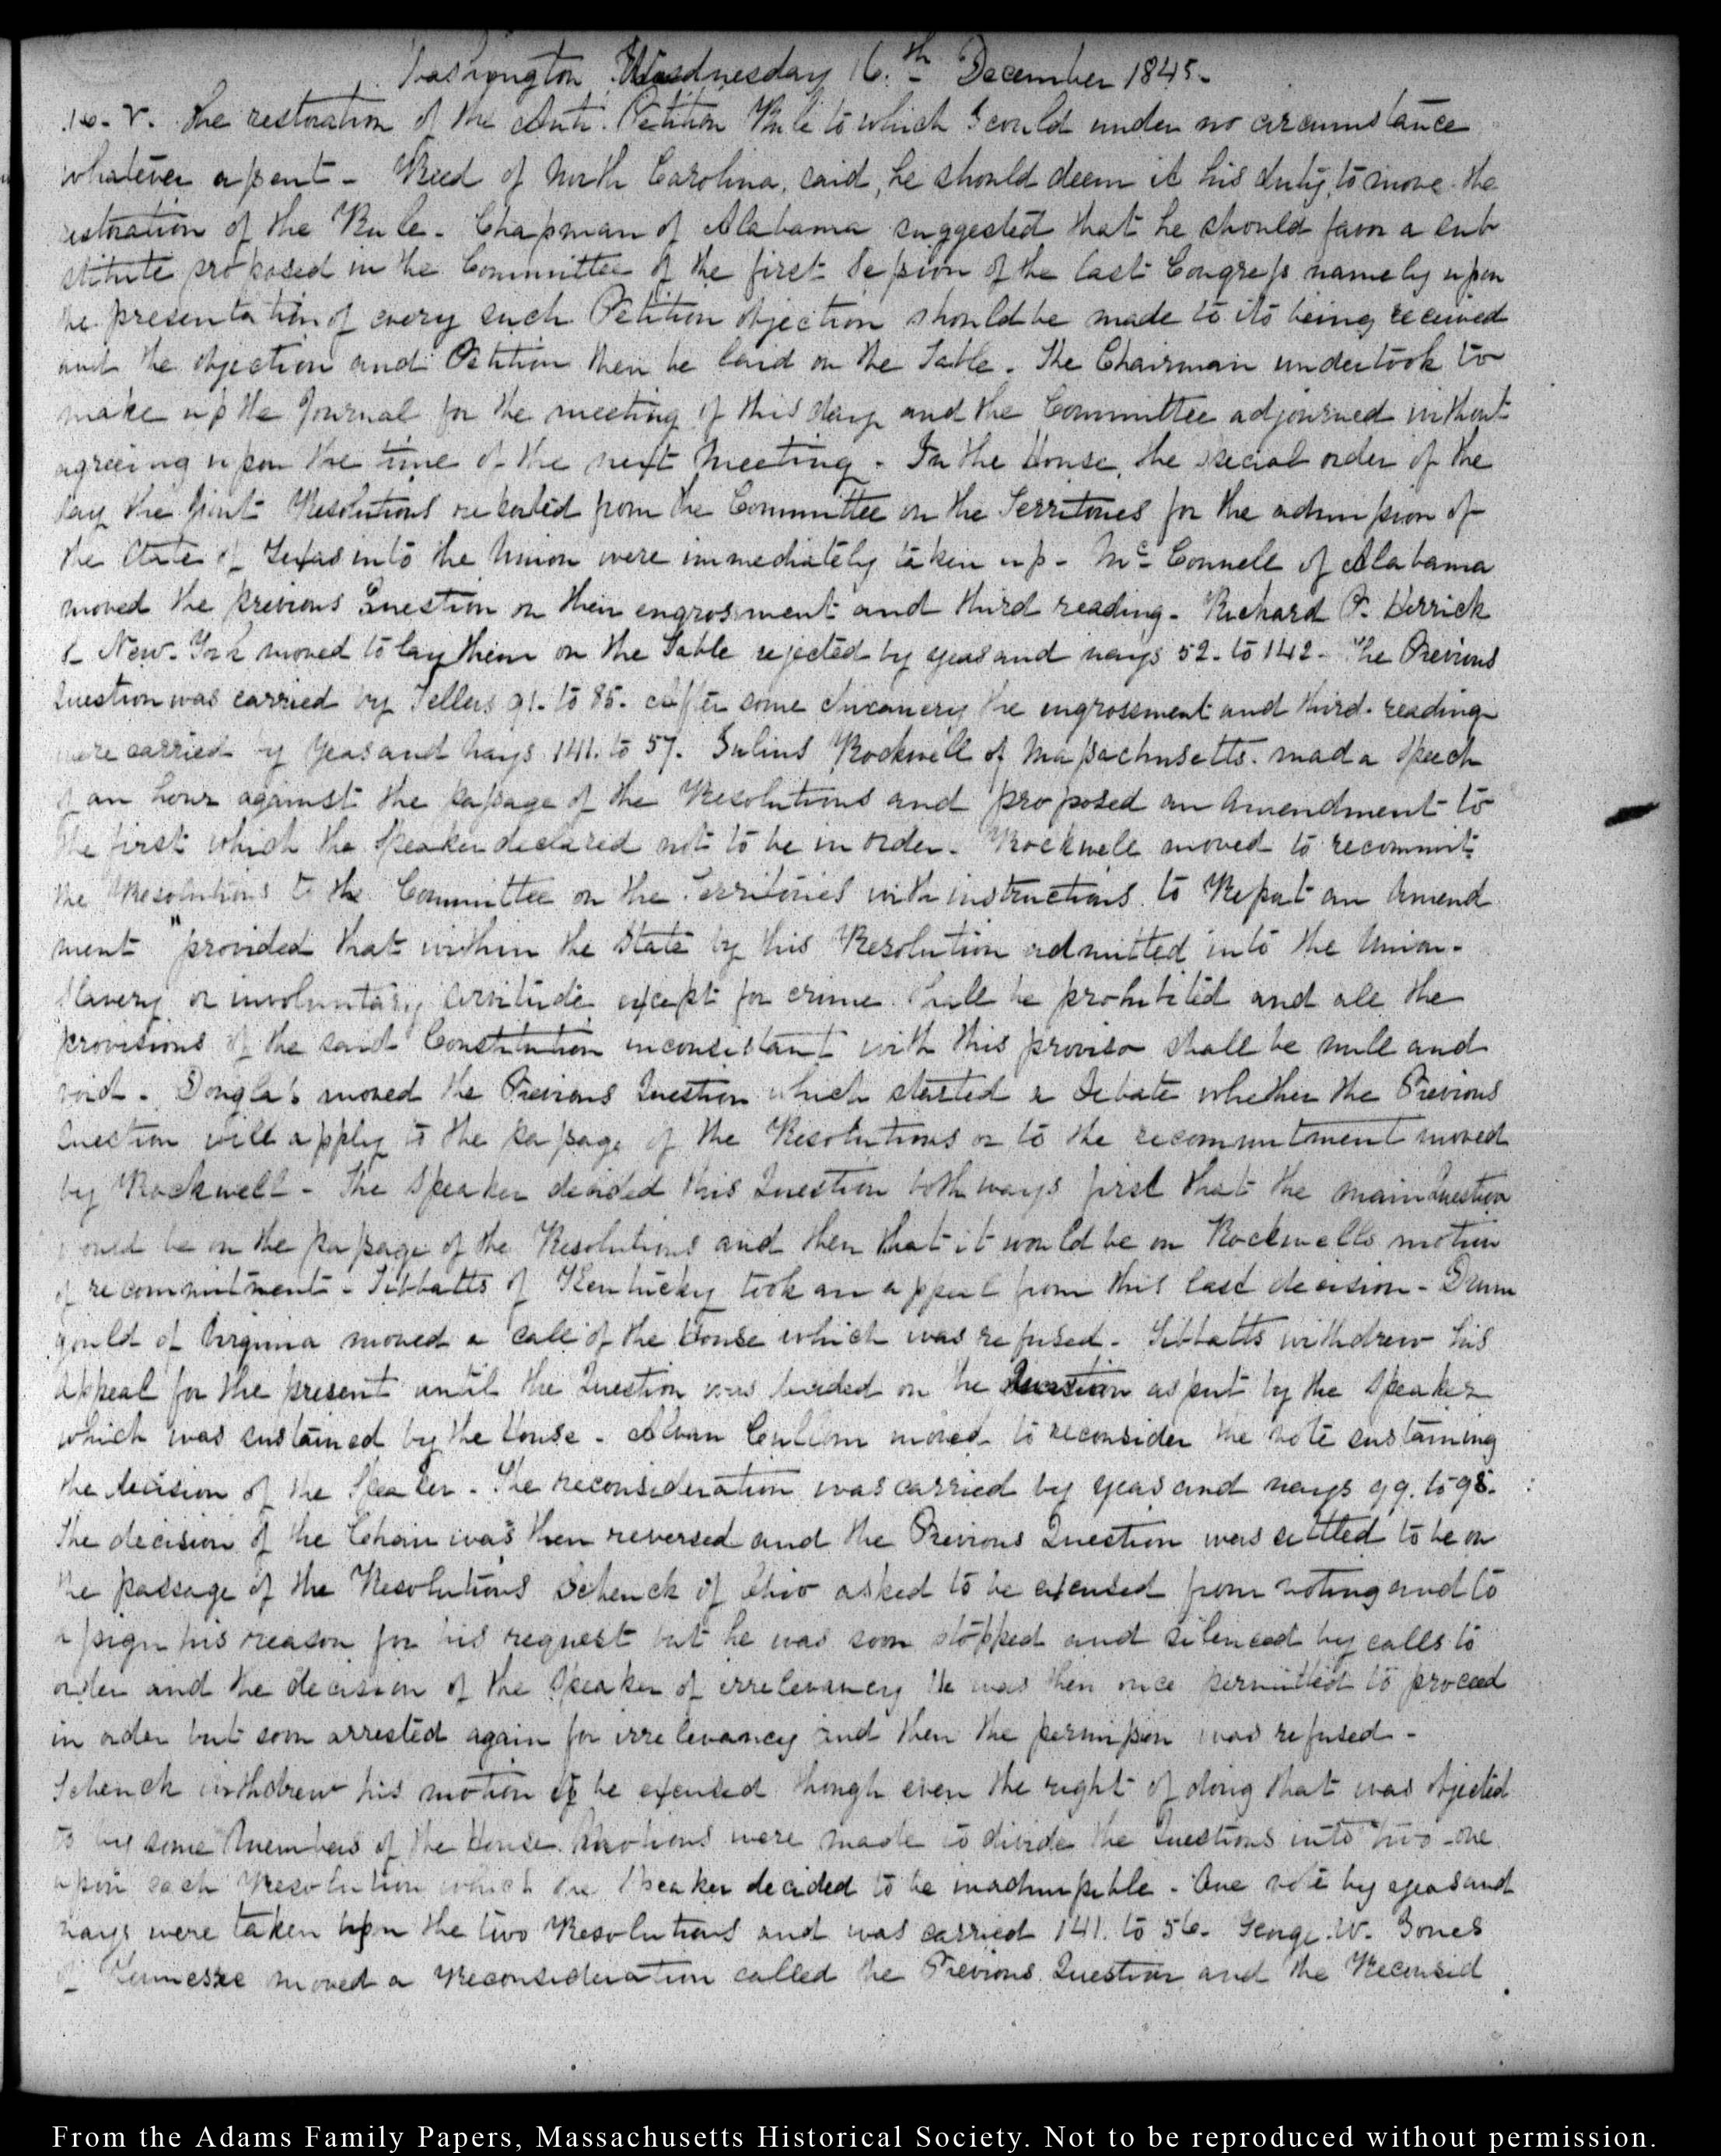 Washington Wednesday 16.th December 1845.
16. V. The restoration of the Anti. Petition Rule to which I could under no circumstance
whatever assent - Reid of North Carolina, said, he should deem it his duty, to move the
restoration of the Rule. Chapman of Alabama suggested that he should favor a sub
stitute proposed in the Committee of the first Session of the last Congress namely upon
the presentation of every such Petition objection should be made to its being received
and the objection and Petition then be laid on the Table. The Chairman undertook to
make up the Journal for the meeting of this day and the Committee adjourned without
agreeing upon the time of the next meeting. In the House, the special order of the
day the joint Resolutions reported from the Committee on the Territories for the admission of
the State of Texas into the Union were immediately taken up - Mc Connell of Alabama
moved the previous Question on their engrossment and third reading. Richard P. Herrick
of New-York moved to lay them on the Table rejected by yeas and nays 52. to 142 - The Previous
Question was carried by Tellers 91. to 85. After some chicanery the engrossment and third. reading
were carried by Yeas and Nays 141. to 57. Julius Rockwell of Massachusetts. made a speech
of an hour against the passage of the Resolutions and proposed an Amendment to
the first which the Speaker declared not to be in order. Rockwell moved to recommit
the Resolutions to the Committee on the Territories with instructions. to Report an Amend
ment "provided that within the State by this Resolution admitted into the Union.
slavery or involuntary servitude except for crime shall be prohibited and all the
provisions of the said Constitution inconsistant with this proviso shall be null and
void. Douglass moved the Previous Question which started a debate whether the Previous
Question will apply to the passage of the Resolutions or to the recommitment moved
by Rockwell - The Speaker decided this Question both ways first that the main Question
would be on the passage of the Resolutions and then that it would be on Rockwells motion
of recommitment. Tibbatts of Kentucky took an appeal from this last decision - Drum
gould of Virginia moved a call of the House which was refused. Tibbatts withdrew his
appeal for the present until the Question was on the Question as put by the Speaker
which was sustained by the House. Alvan Cullom moved to reconsider the vote sustaining
the decision of the Speaker. The reconsideration was carried by yeas and nays 99. to 95.
The decision of the Chair was then reversed and the Previous Question was settled to be on
the passage of the Resolutions Schenck of Ohio asked to be excused from voting and to
assign his reason for his request but he was soon stopped and silenced by calls to
order and the decision of the Speaker of irrelevancy He was then once permitted to proceed
in order but soon arrested again for irrelevancy and then the permission was refused -
Schenck withdrew his motion to be excused though even the right of doing that was objected
to by some Members of the House. Motions were made to divide the Questions into two - one
upon each Resolution which the Speaker decided to be inadmissible. One vote by yeas and
nays were taken upon the two Resolutions and was carried 141. to 56. George. W. Jones
of Tennessee moved a Reconsideration called the Previous Question and the Reconsid
From the Adams Family Papers, Massachusetts Historical Society. Not to be reproduced without permission.